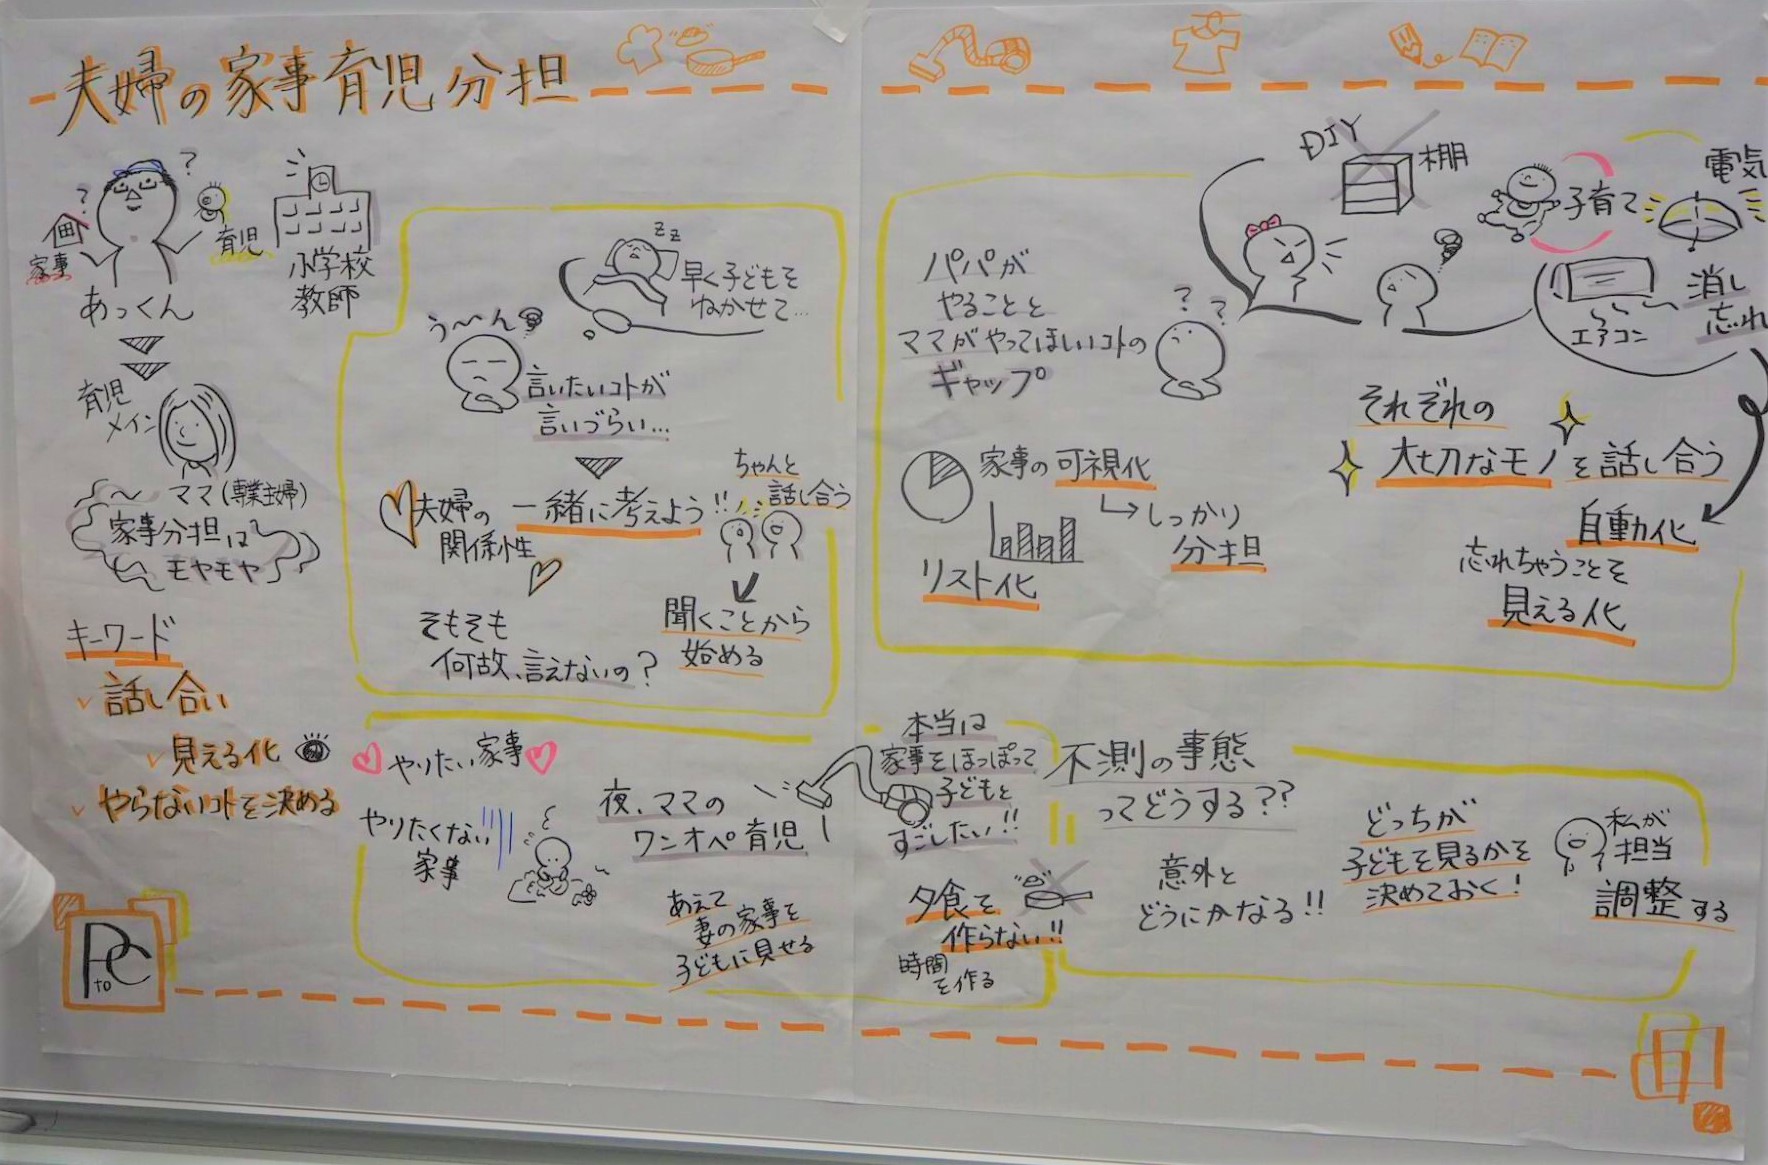 夫婦の家事育児分担
?
?
家事
育児
あっくん
小学校
教師
育児
メイン
ママ(専業主婦)
家事分担は
モヤモヤ
キーワード
話し合い
見える化
やらないコトを決める
P to C
zz
早く子どもを
ねかせて…
う〜ん
言いたいコトが
言いづらい…
夫婦の
関係性
一緒に考えよう!!
ちゃんと
話し合う
聞くことから
始める
そもそも
何故、言えないの?
パパが
やることと
ママがやってほしいコトの
ギャップ
? ?
DIY
棚
子育て
電気
エアコン
消し
忘れ
家事の可視化
しっかり
分担
リスト化
それぞれの
大切なモノを話し合う
自動化
忘れちゃうことを
見える化
やりたい家事
やりたくない
家事
夜、ママの
ワンオペ育児
あえて
妻の家事を
子どもに見せる
本当は
家事をほっぽって
子どもと
すごしたい!!
夕食を
作らない!!
時間
を作る
不測の事態
ってどうする??
意外と
どうにかなる!!
どっちが
子どもを見るかを
決めておく!
私が
担当
調整する